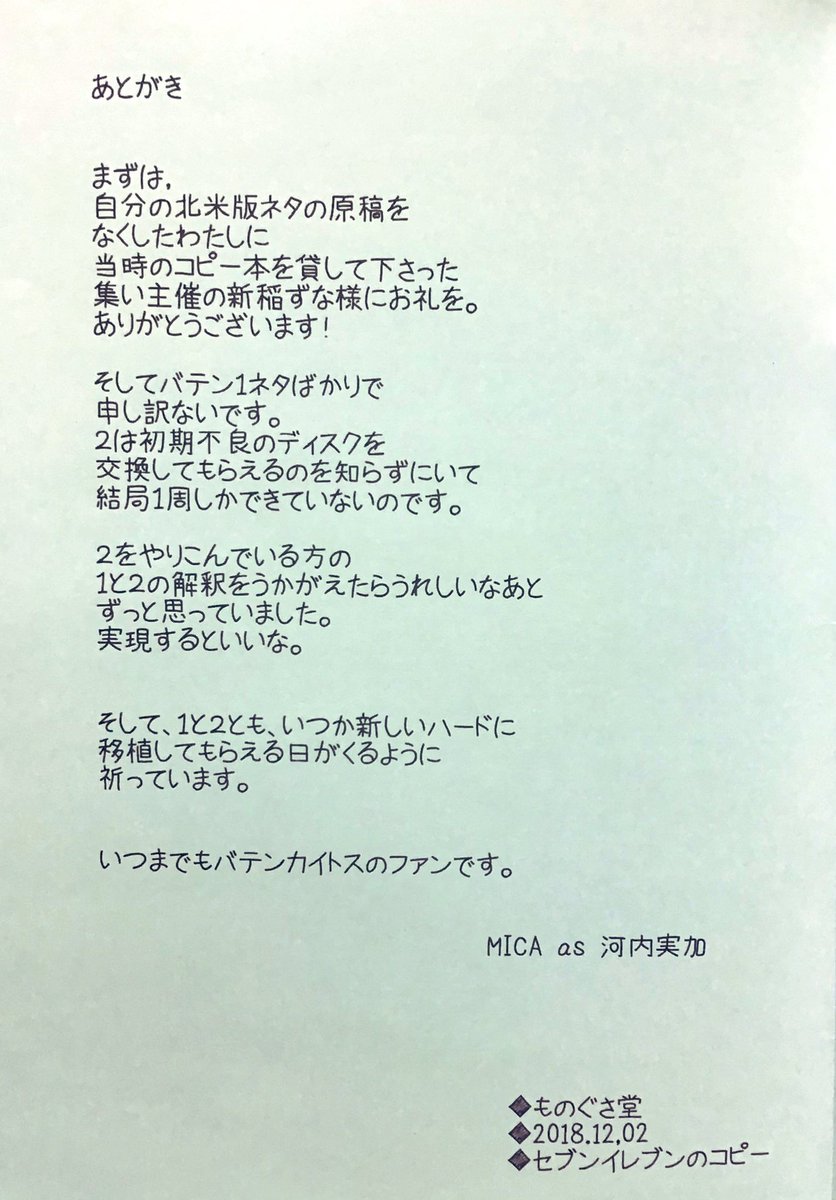 あとがき
まずは,
自分の北米版ネタの原稿を
なくしたわたしに
当時のコピー本を貸して下さった
集い主催の新稲ずな様にお礼を。
ありがとうございます!
そしてバテン1ネタばかりで
申し訳ないです。
2は初期不良のディスクを
交換してもらえるのを知らずにいて
結局1周しかできていないのです。
2をやりこんでいる方の
1と2の解釈をうかがえたらうれしいなあと
ずっと思っていました。
実現するといいな。
そして、1と2とも、いつか新しいハードに
移植してもらえる日がくるように
祈っています。
いつまでもバテンカイトスのファンです。
MICA as 河内実加
◆ものぐさ堂
◆2018.12,02
◆セブンイレブンのコピー